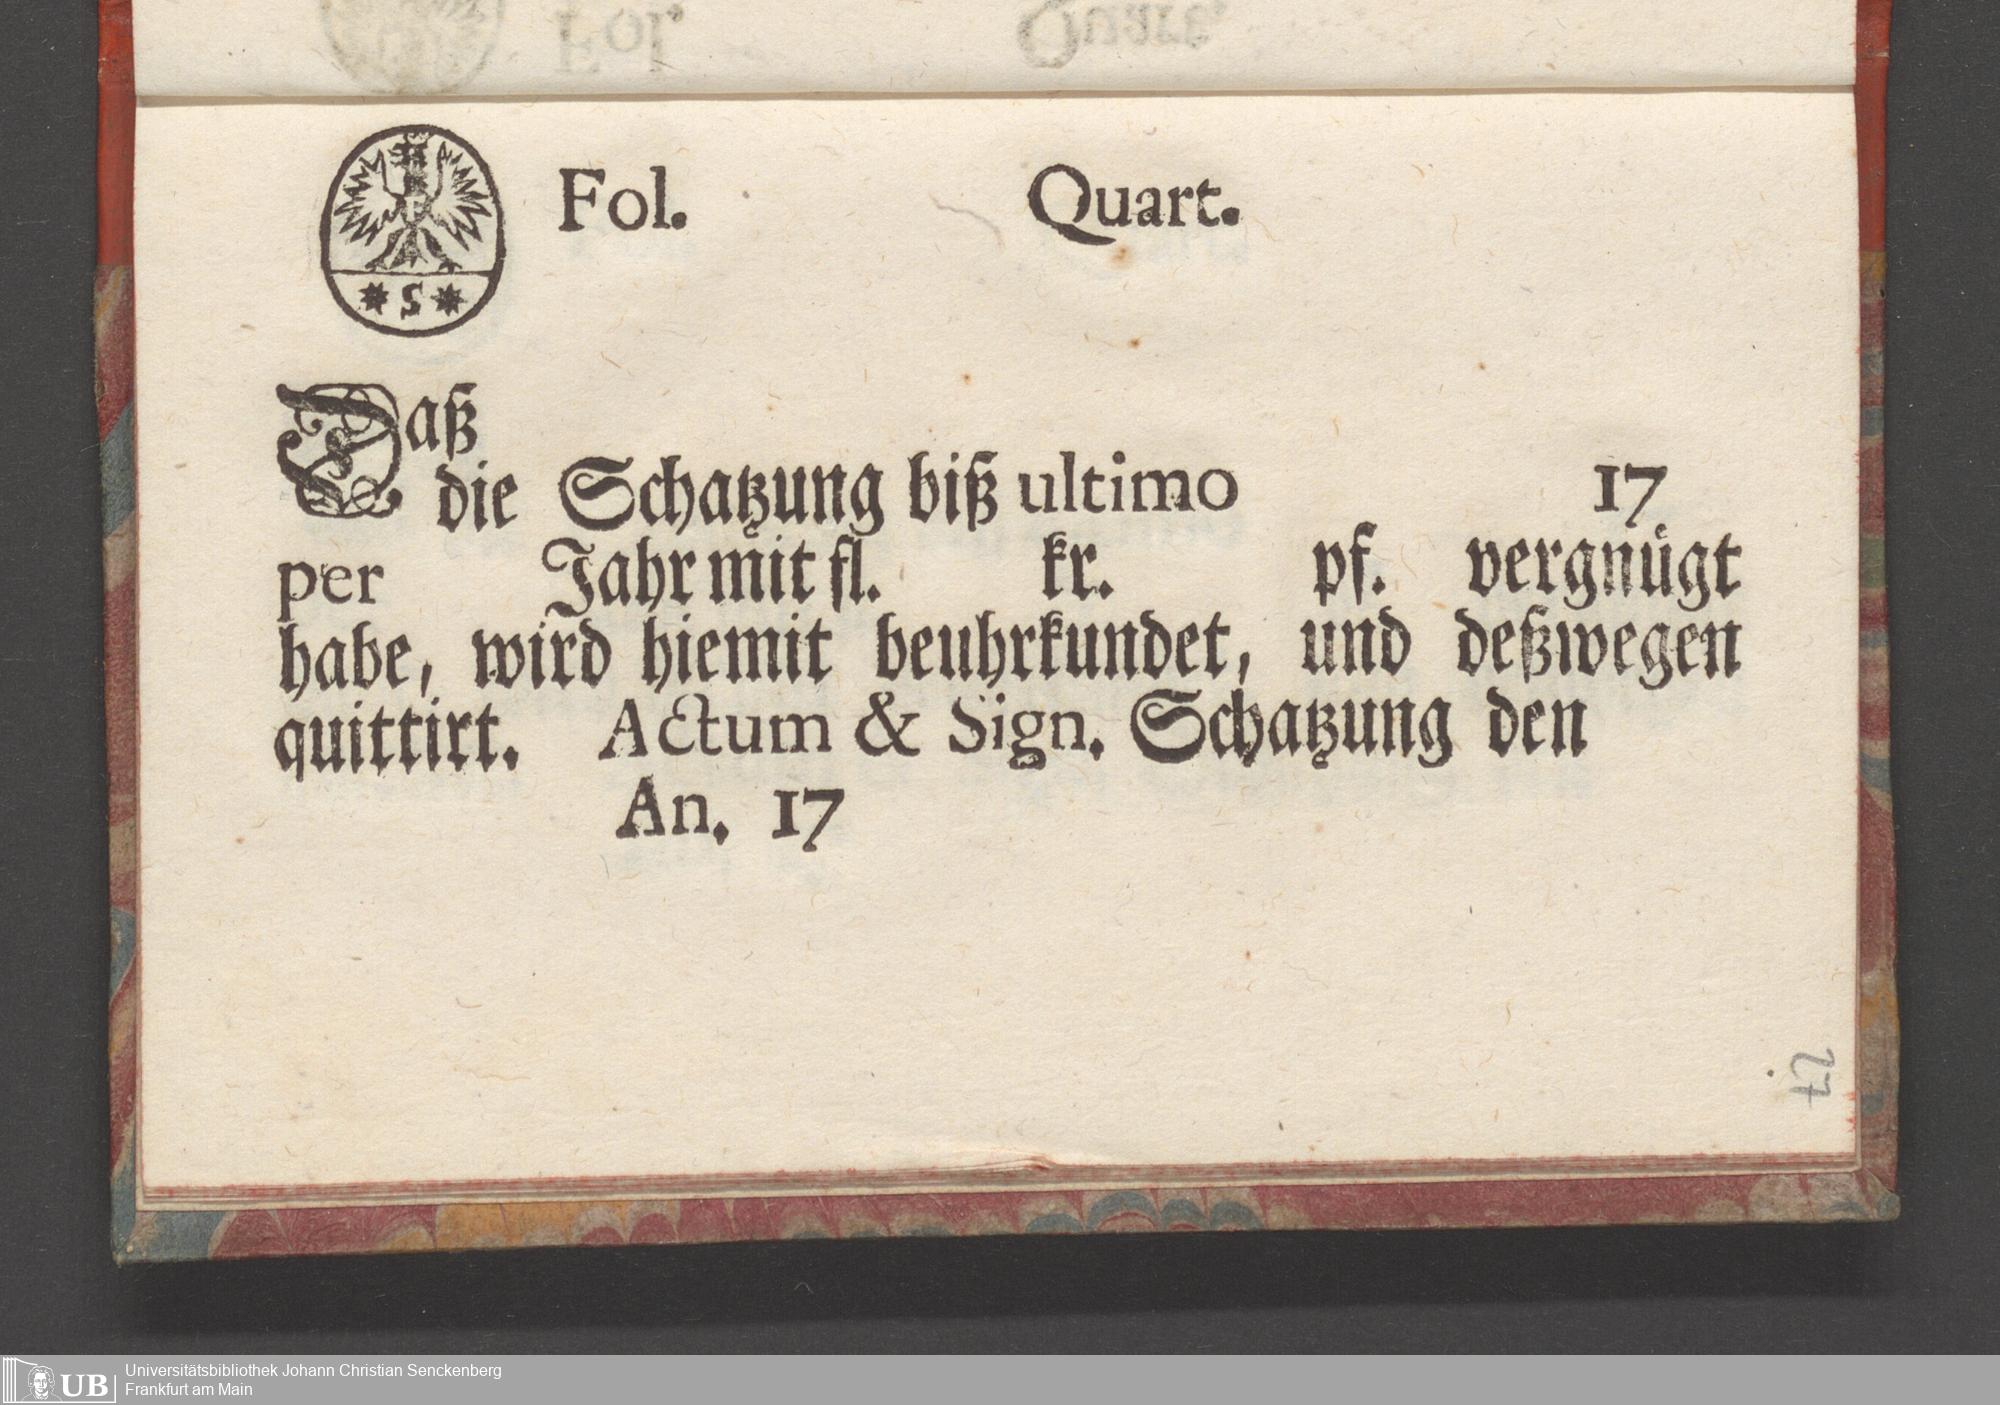 Fol. Quart.
S
Daß
die Schatzung biß ultimo 17
per Jahr mit fl. kr. pf. vergnügt
habe, wird hiemit beuhrkundet, und deßwegen
quittirt. Actum & Sign. Schatzung den
An. 17
27
UB Universitätsbibliothek Johann Christian Senckenberg
Frankfurt am Main